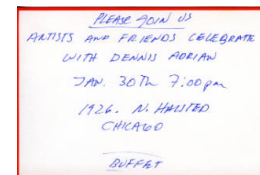 PLEASE JOIN US
ARTISTS AND FRIENDS CELEBRATE
WITH DENNIS ADRIAN
JAN. 30Th 7:00 pm
1926. N. HALSTED
CHICAGO
BUFFET